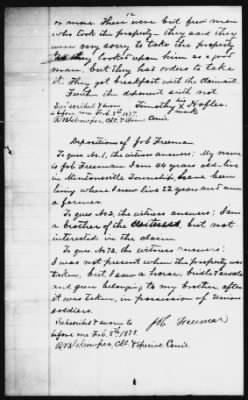 or more. There were but few men
who took the property - they said they
were very sorry to take the property
as they looked upon him as a good
man, but they had orders to take
it. They got breakfast with the claimant
Further the deponent saith not
Subscribed & sworn Timothy his x Hofler
before me Feb. 8th 1878. mark
Com. & Special Com'r.
Deposition of Job Freeman
To ques. No. 1, the witness answers: My name
is Job Freeman. I am 44 years old - live
in Mintonsville Township, have been
living where I now live 22 years and am
a farmer.
To ques. No 2, the witness answers: I am
a brother of the but not
interested in the claim.
To ques. No 72, the witness answers:
I was not present when the property was
taken, but I saw a horse, bridle & saddle
and gun belonging to my brother after
it was taken, in possession of Union
soldiers.
Subscribed & sworn to Job Freeman
before me Feb. 8th 1878.
& Special Com'r.